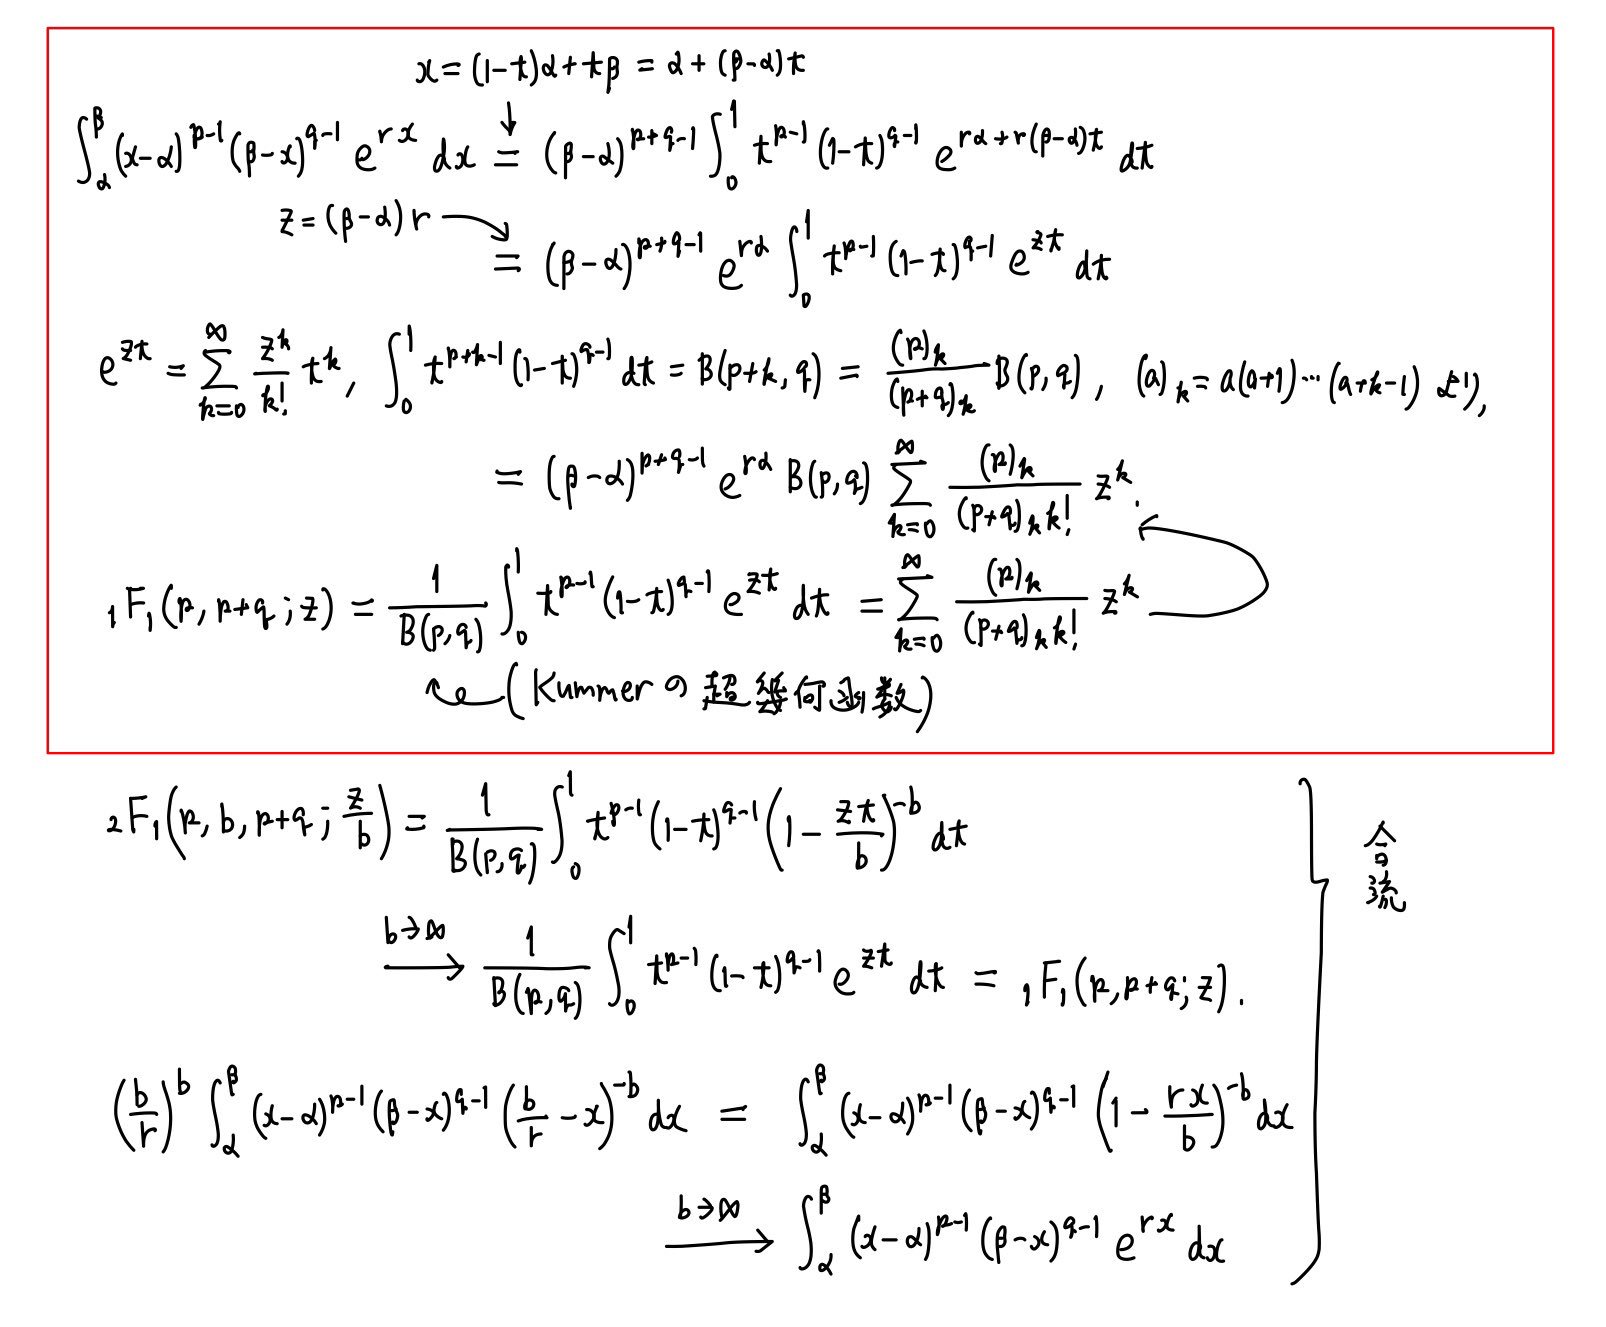 x = (1-t)α + tβ = α + (β-α)t
∫_α^β (x-α)^{p-1} (β-x)^{q-1} e^{rx} dx = (β-α)^{p+q-1} ∫_0^1 t^{p-1} (1-t)^{q-1} e^{rα+r(β-α)t} dt
z = (β-α)r
= (β-α)^{p+q-1} e^{rα} ∫_0^1 t^{p-1} (1-t)^{q-1} e^{zt} dt
e^{zt} = Σ_{k=0}^∞ \frac{z^k}{k!} t^k, ∫_0^1 t^{p+k-1} (1-t)^{q-1} dt = B(p+k, q) = \frac{(p)_k}{(p+q)_k} B(p,q), (a)_k = a(a+1)…(a+k-1) より,
= (β-α)^{p+q-1} e^{rα} B(p,q) Σ_{k=0}^∞ \frac{(p)_k}{(p+q)_k k!} z^k.
₁F₁(p, p+q; z) = \frac{1}{B(p,q)} ∫_0^1 t^{p-1} (1-t)^{q-1} e^{zt} dt = Σ_{k=0}^∞ \frac{(p)_k}{(p+q)_k k!} z^k
(Kummerの超幾何函数)
₂F₁(p, b, p+q; \frac{z}{b}) = \frac{1}{B(p,q)} ∫_0^1 t^{p-1} (1-t)^{q-1} (1 - \frac{zt}{b})^{-b} dt
合流
b→∞ ⟶ \frac{1}{B(p,q)} ∫_0^1 t^{p-1} (1-t)^{q-1} e^{zt} dt = ₁F₁(p, p+q; z).
(\frac{b}{r})^b ∫_α^β (x-α)^{p-1} (β-x)^{q-1} (\frac{b}{r} - x)^{-b} dx = ∫_α^β (x-α)^{p-1} (β-x)^{q-1} (1 - \frac{rx}{b})^{-b} dx
b→∞ ⟶ ∫_α^β (x-α)^{p-1} (β-x)^{q-1} e^{rx} dx